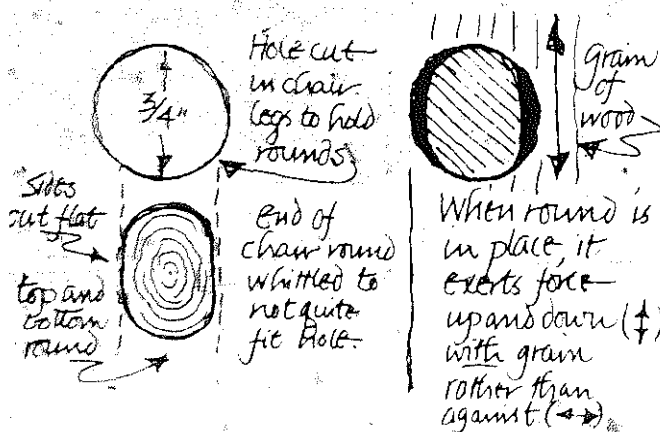 3/4"
Hole cut
in chair
legs to hold
rounds
Sides
cut flat
top and
bottom
round
end of
chair round
whittled to
not quite
fit hole.
grain
of
wood
When round is
in place, it
exerts force
up and down (↕)
with grain
rother than
against (↔)